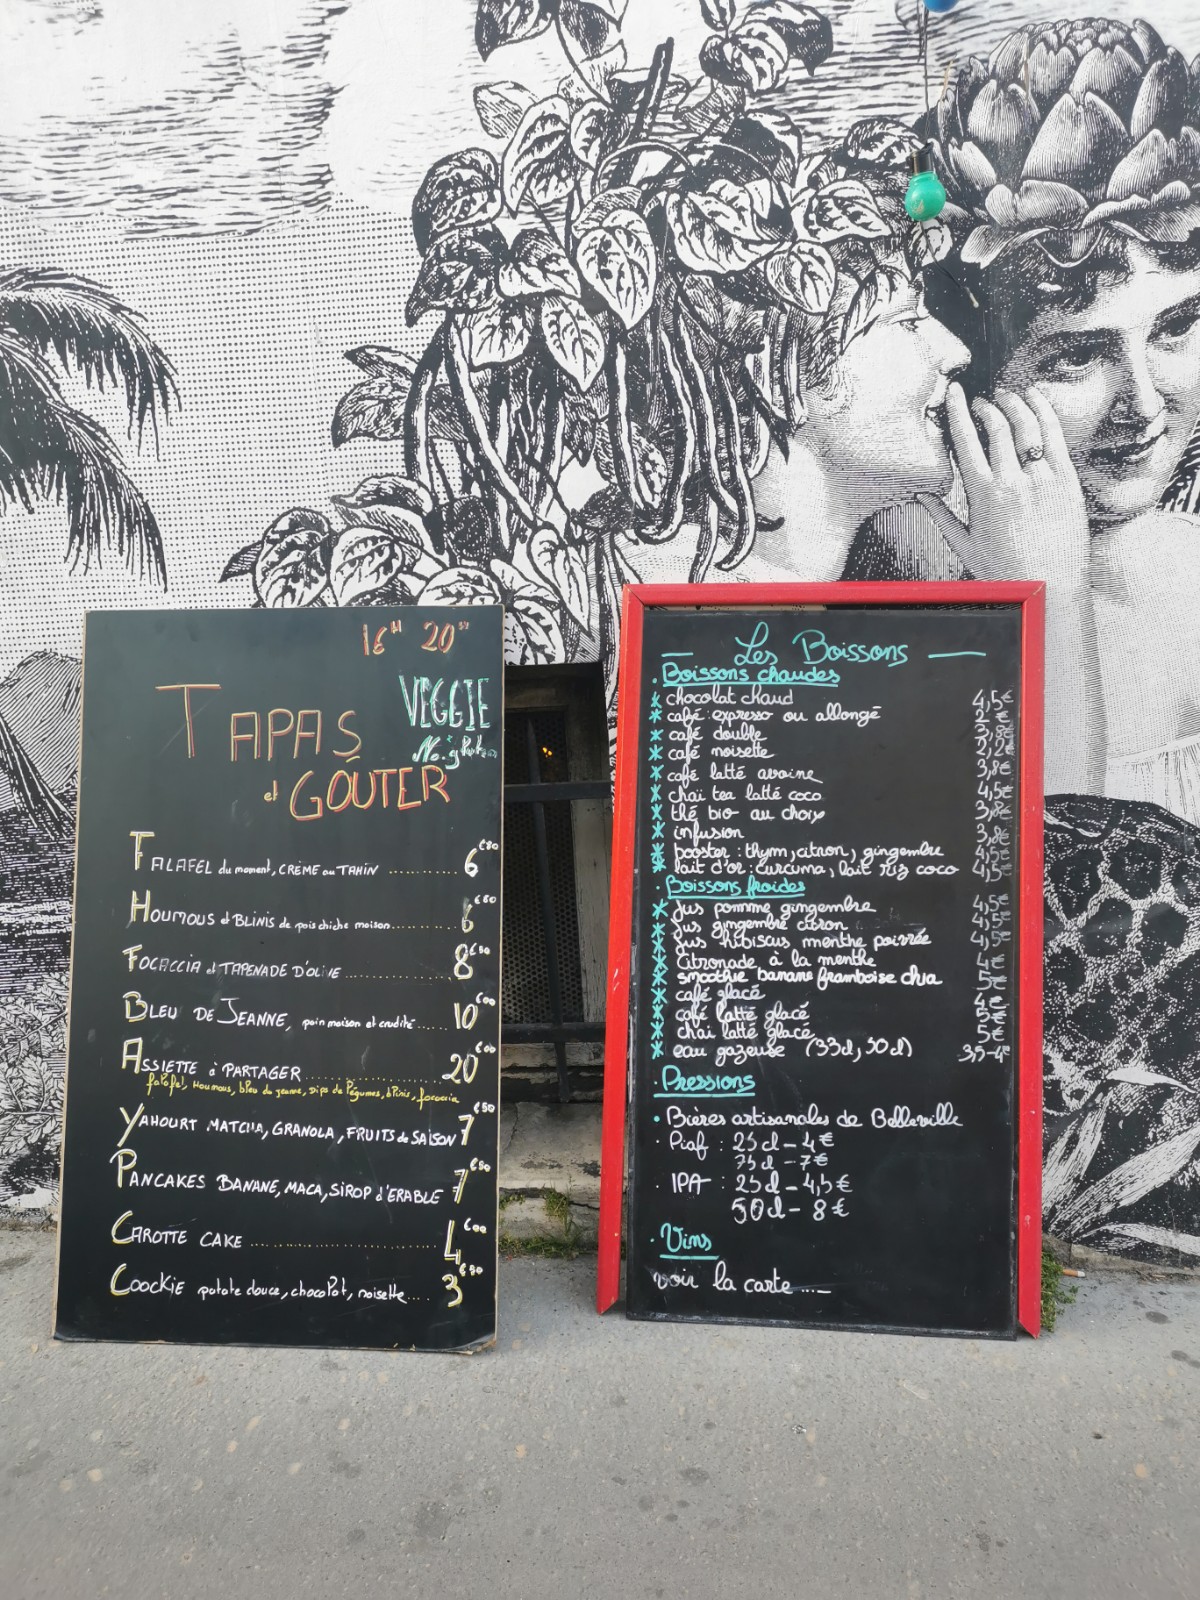 16H 20
VEGGIE
TAPAS
et GOÛTER
TALAFEL du moment, CRÈME au TAHIN ........... 6€80
HOUMOUS et BLINIS de pois chiche maison........... €80
FOCACCIA et TAPENADE D'OLIVE ............ 8€50
BLEU DE JEANNE, pain maison et crudité...... 10€00
ASSIETTE à PARTAGER ............ 20€00
falafel, Houmous, bleu de jeanne, Dips de légumes, blinis, focaccia
YAHOURT MATCHA, GRANOLA, FRUITS de SAISON 7€50
PANCAKES BANANE, MACA, SIROP d'ERABLE 7€50
CAROTTE CAKE ............ 4€00
COOCKIE patate douce, chocolat, noisette.... 3€50
Les Boissons
Boissons chaudes
chocolat chaud 4,5€
café: expresso ou allongé
café double
café noisette
café latté avoine 3,8€
chai tea latté coco 4,5€
thé bio au choix 3,8€
infusion 3,8€
booster : thym, citron, gingembre 4,5€
lait d'or: curcuma, lait riz coco 4,5€
Boissons froides
jus pomme gingembre 4,5€
jus gingembre citron 4,5€
jus hibiscus menthe poivrée 4,5€
Citronade à la menthe 4€
smoothie banane framboise chia 5€
café glacé 4€
café latté glacé 5€
chai latté glacé 5€
eau gazeuse (33cl, 50cl) 3,5-4€
Pressions
Bières artisanales de Belleville
Piaf : 25cl - 4€
cl - 7€
IPA : 25cl - 4,5€
50cl - 8€
Vins
voir la carte ....